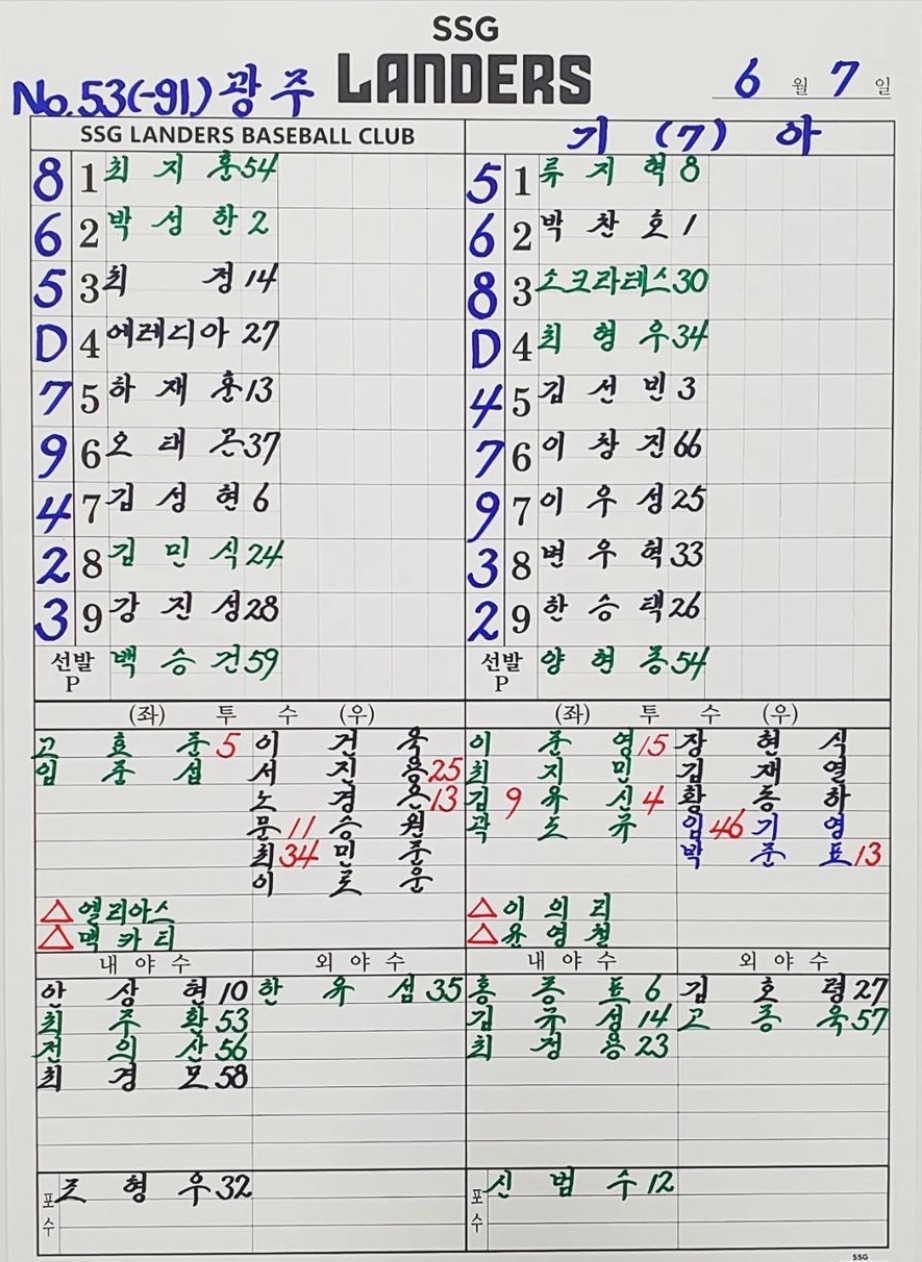 SSG
LANDERS
No.53(-91) 광주 6월 7일
SSG LANDERS BASEBALL CLUB 기 (7) 아
8 1 최지훈 54 5 1 류지혁 8
6 2 박성한 2 6 2 박찬호 1
5 3 최정 14 8 3 소크라테스 30
D 4 에레디아 27 D 4 최형우 34
7 5 하재훈 13 4 5 김선빈 3
9 6 오태곤 37 7 6 이창진 66
4 7 김성현 6 9 7 이우성 25
2 8 김민식 24 3 8 변우혁 33
3 9 강진성 28 2 9 한승택 26
선발 P 백승건 59 선발 P 양현종 54
(좌) 투수 (우) (좌) 투수 (우)
고효준 5 이건욱 이준영 15 장현식
임준섭 서진용 25 최지민 김재열
노경은 13 김 9 유신 4 황동하
문 11 승원 곽도규 임 46 기영
최 34 민준 박준표 13
이로운
△ 엘리아스 △ 이의리
△ 맥카티 △ 윤영철
내야수 외야수 내야수 외야수
안상현 10 한유섬 35 홍종표 6 김호령 27
최주환 53 김규성 14 고종욱 57
전의산 56 최정용 23
최경모 58
포수 조형우 32 포수 신범수 12
SSG